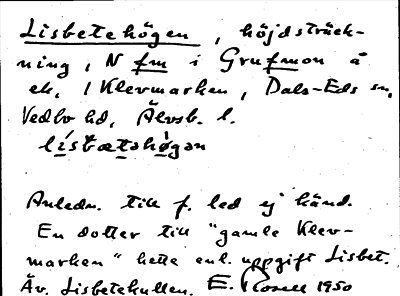 Lisbetehögen, höjdsträck-
ning, N fm i Grufmon å
ek. 1 Klevmarken, Dals-Eds sn,
Vedbo hd, Älvsb. l.
lísbætəhø̀gən
Anledn. till f. led ej känd.
En dotter till "gamle Klev-
marken" hette enl. uppgift Lisbet.
Äv. Lisbetekullen. E. Rosell 1950